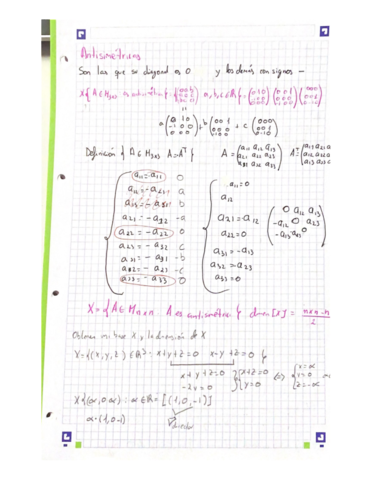 Antisimétricas
Son las que su diagonal es 0 y los demás con signos –
X{A∈M3x3 es antisimétrica}
a(0 1 0 / -1 0 0 / 0 0 0) + b(0 0 1 / 0 0 0 / -1 0 0) + c(0 0 0 / 0 0 1 / 0 -1 0)
Definición { A ∈ M3x3 A=Aᵀ } A = (a11 a12 a13 / a21 a22 a23 / a31 a32 a33)
a11=-a11 0
a12=-a21 a
a13=-a31 b
a21=-a12 -a
a22=-a22 0
a23=-a32 c
a31=-a13 -b
a32=-a23 -c
a33=-a33 0
a11=0
a12
a21=-a12
a22=0
a31=-a13
a32=-a23
a33=0
(0 a12 a13 / -a12 0 a23 / -a13 -a23 0)
X={A∈Mnxn : A es antisimétrica} dim[X] = nxn-n/2
Obtener mi base X y la dimensión de X
X={(x,y,z)∈R³: x+y+z=0 x-y+z=0}
x+y+z=0
-2y=0
x+z=0
y=0
x=α
y=0
z=-α
X{(α,0,-α) : α∈R} = [(1,0,-1)]
α·(1,0,-1)